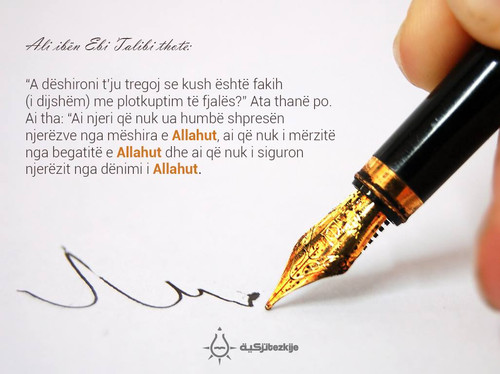 Ali ibën Ebi Talibi thotë:
“A dëshironi t’ju tregoj se kush është fakih
(i dijshëm) me plotkuptim të fjalës?” Ata thanë po.
Ai tha: “Ai njeri që nuk ua humbë shpresën
njerëzve nga mëshira e Allahut, ai që nuk i mërzitë
nga begatitë e Allahut dhe ai që nuk i siguron
njerëzit nga dënimi i Allahut.
تزكية tezkije